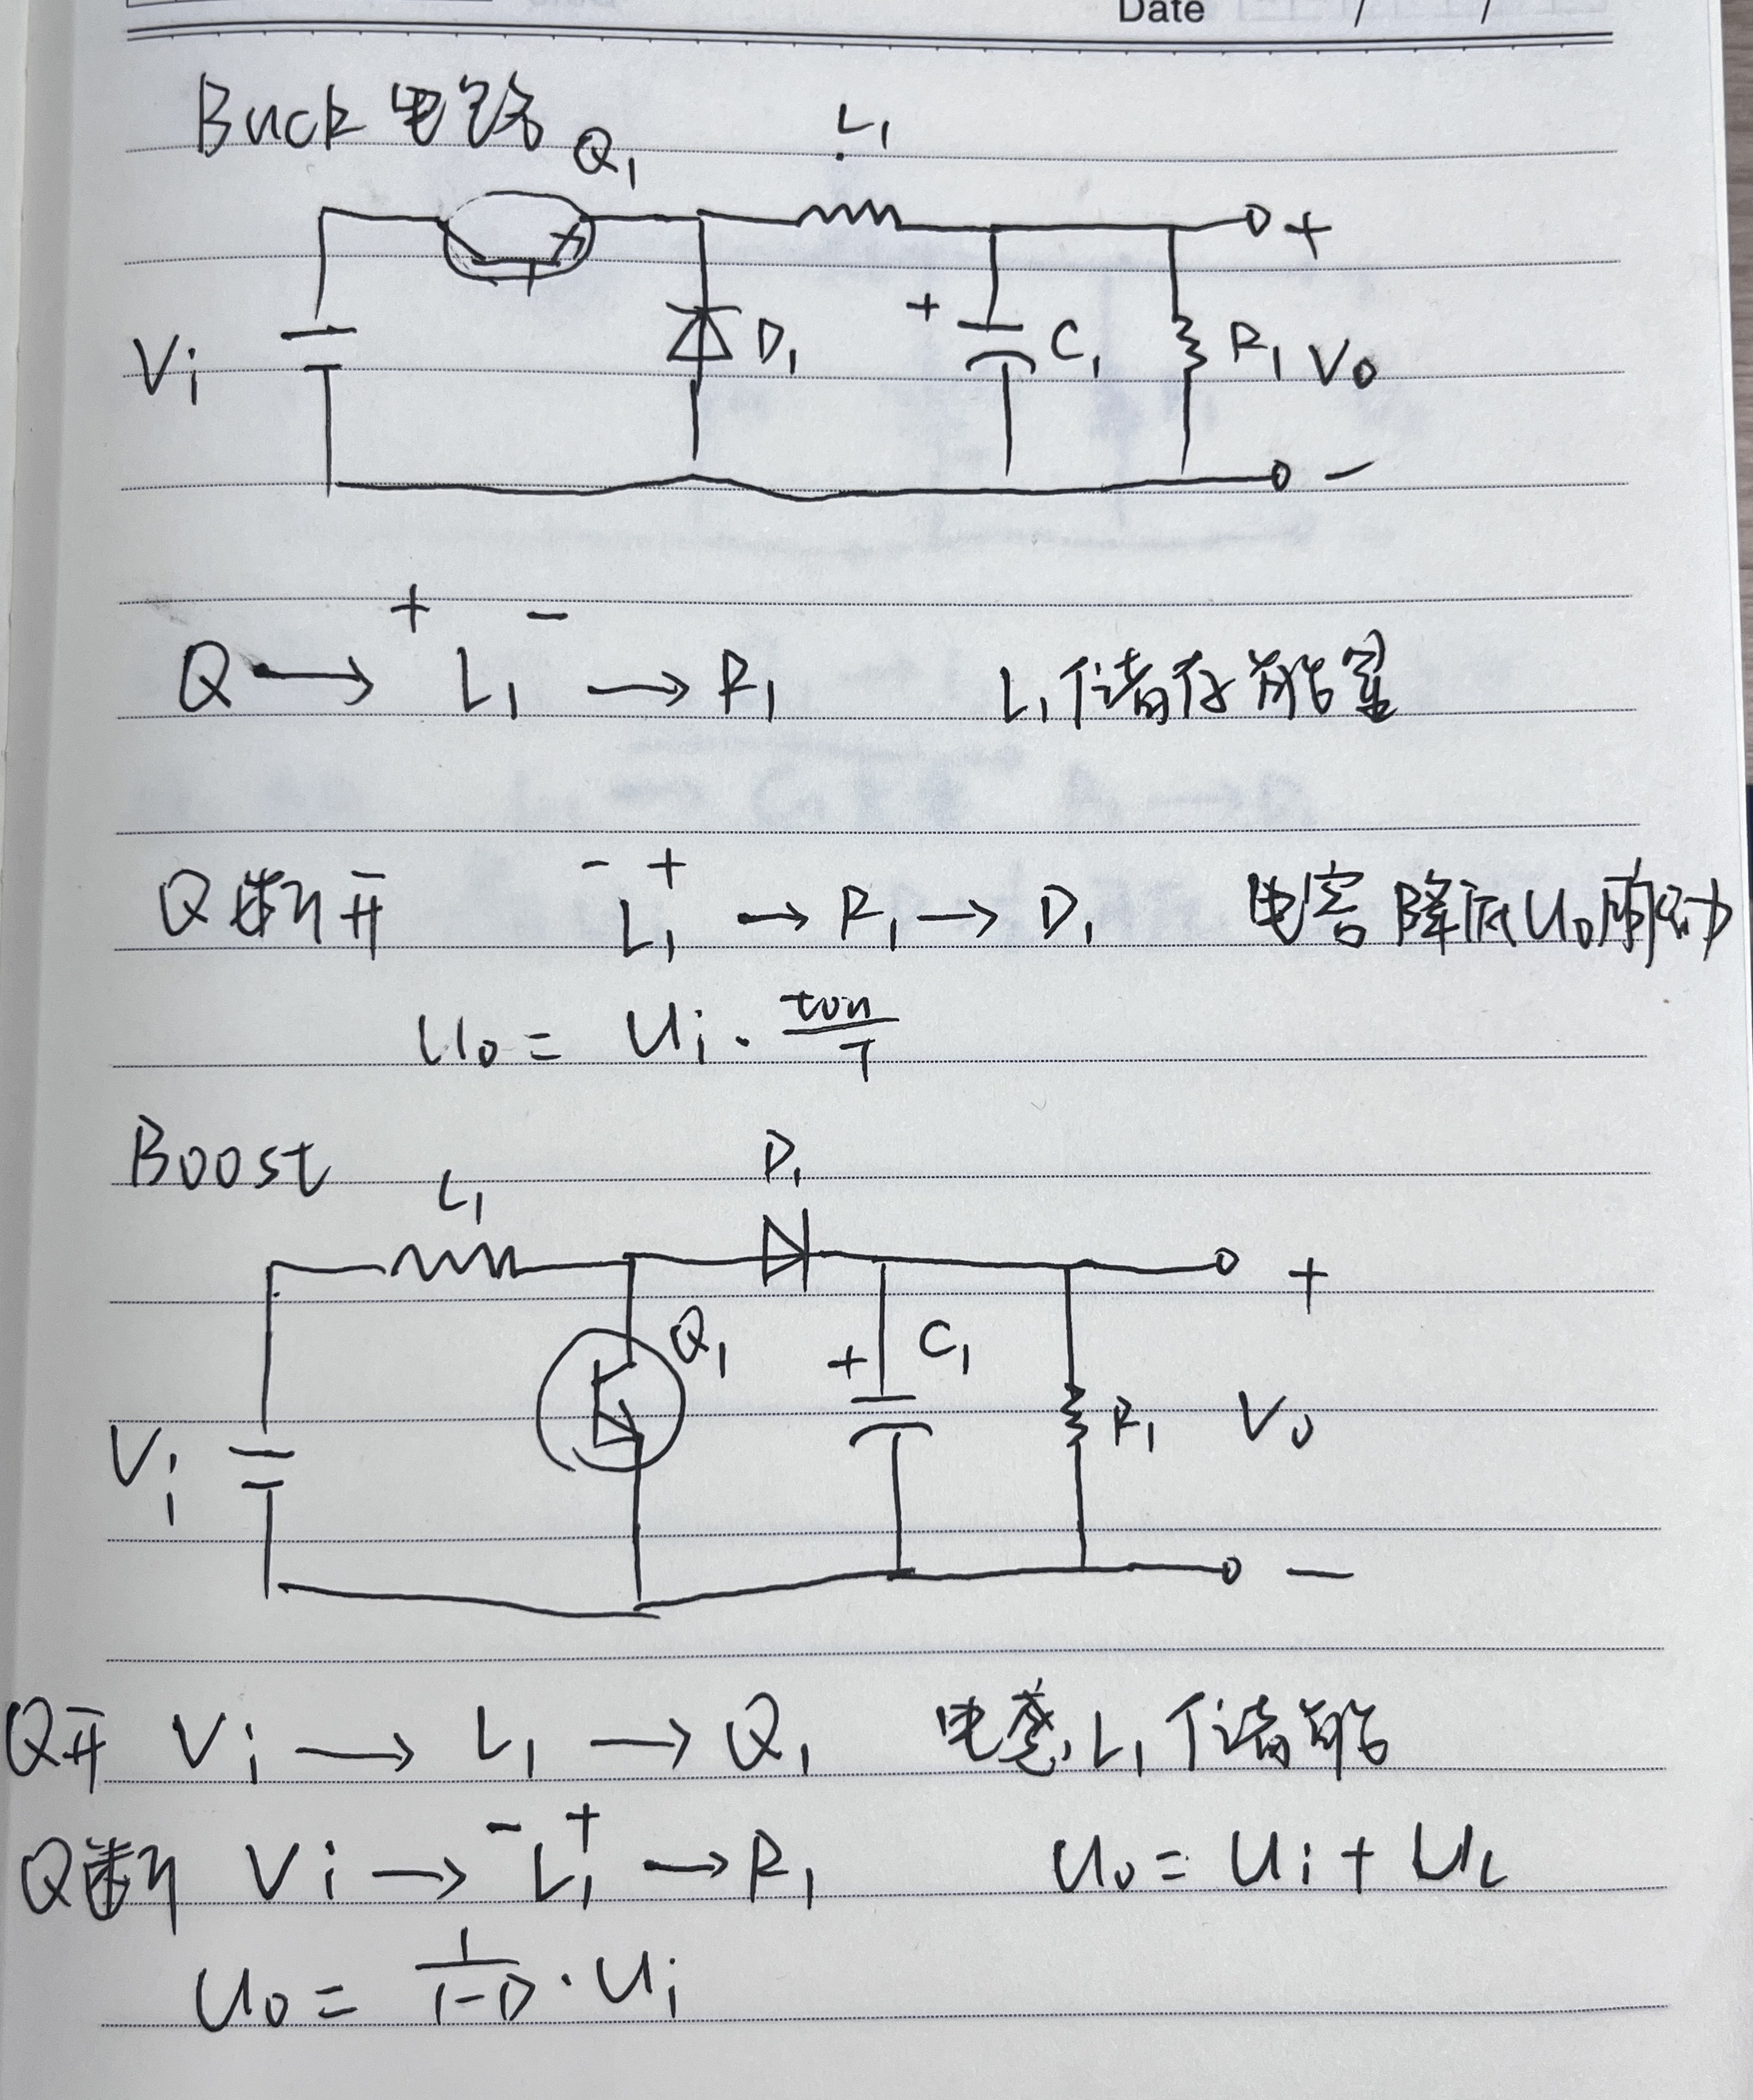 Date / /
Buck 电路 Q1 L1
+
Vi D1 + C1 R1 Vo
-
+ -
Q → L1 → R1 L1储存能量
- +
Q断开 L1 → R1 → D1 电容降低Uo脉动
Uo = Ui · ton/T
Boost
L1 D1
+
Q1 + C1
Vi R1 Vo
-
Q开 Vi → L1 → Q1 电感L1储能
- +
Q断 Vi → L1 → R1 Uo = Ui + UL
Uo = 1/(1-D) · Ui